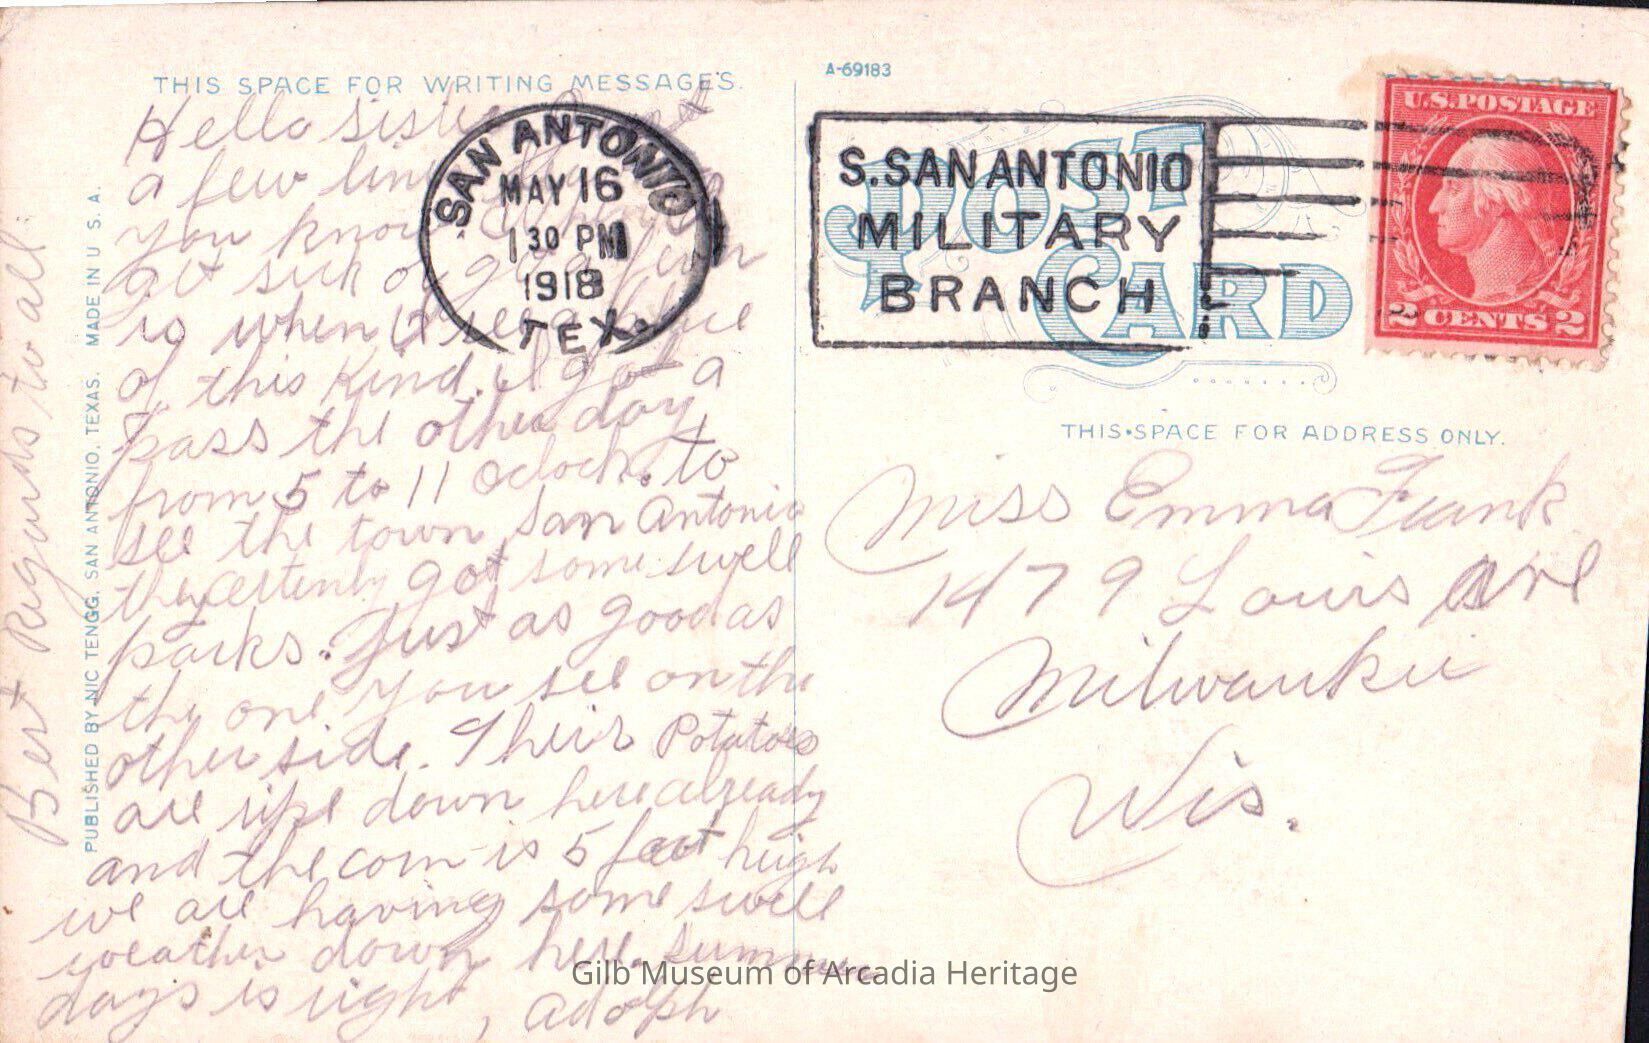 THIS SPACE FOR WRITING MESSAGES.
Hello Sister
a few lines
you know
get sick of
is when
of this kind. I got a
pass the other day,
from 5 to 11 oclock. to
see the town San Antonio
they certenly got some swell
parks. Just as good as
the one you see on the
other side. Their Potatoes
are ripe down here already
and the corn is 5 feet heigh
we are having some swell
weather down here. summer
days is right, Adolph
Best Regards to all.
PUBLISHED BY NIC TENGG, SAN ANTONIO, TEXAS. MADE IN U. S. A.
SAN ANTONIO
MAY 16
1 30 PM
1918
TEX.
A-69183
S. SAN ANTONIO
MILITARY
BRANCH
POST
CARD
U.S. POSTAGE
2 CENTS 2
THIS SPACE FOR ADDRESS ONLY.
Miss Emma Frank
1479 Louis Ave
Milwaukee
Wis.
Gilb Museum of Arcadia Heritage